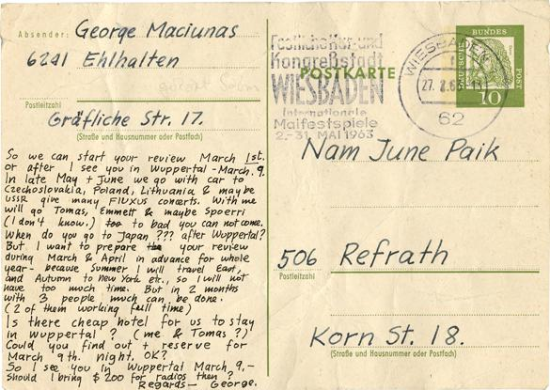 Absender: George Maciunas
6241 Ehlhalten
Postleitzahl
Gräfliche Str. 17.
(Straße und Hausnummer oder Postfach)
So we can start your review March 1st.
or after I see you in Wuppertal - March. 9.
In late May + June we go with car to
Czechoslovakia, Poland, Lithuania & maybe
USSR give many FlUXUS concerts. With me
will go Tomas, Emmett & maybe Spoerri
(I don't know.) too bad you can not come.
When do you go to Japan ??? after Wuppertal?
But I want to prepare your review
during March & April in advance for whole
year - because Summer I will travel East,
and Autumn to New York etc., so I will not
have too much time. But in 2 months
with 3 people, much can be done.
(2 of them working full time)
Is there cheap hotel for us to stay
in Wuppertal ? (me & Tomas ?)
Could you find out + reserve for
March 9th. night. OK?
So I see you in Wuppertal March 9.-
should I bring $ 200 for radios then ?
Regards - George.
Festliche Kur- und
Kongreßstadt
WIESBADEN
Internationale
Maifestspiele
2.-31. MAI 1963
POSTKARTE
WIESBADEN
27. 2. 63
62
DEUTSCHE BUNDESPOST
10
Nam June Paik
506 Refrath
Postleitzahl
Korn St. 18.
(Straße und Hausnummer oder Postfach)